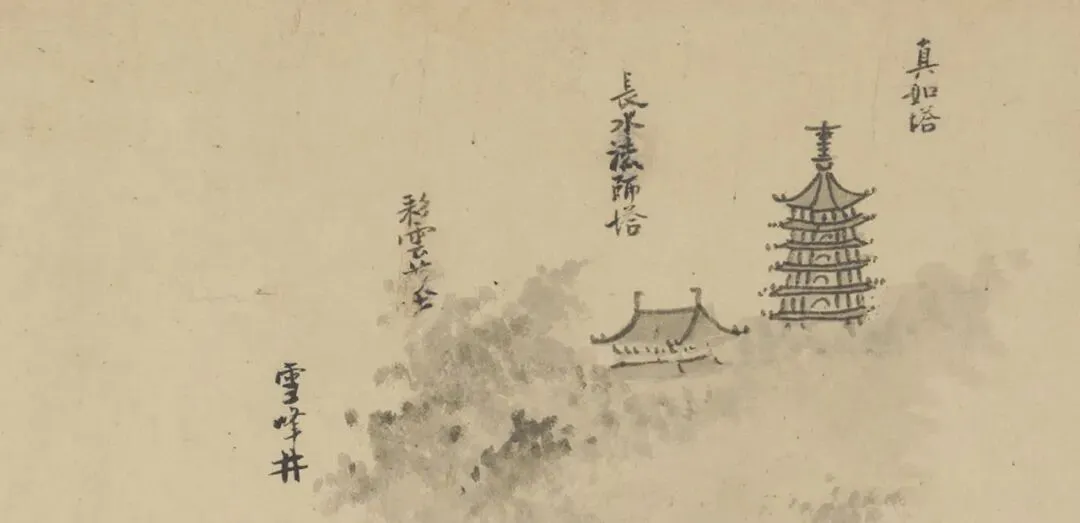 真如塔
長水法師塔
雲
雪峰井